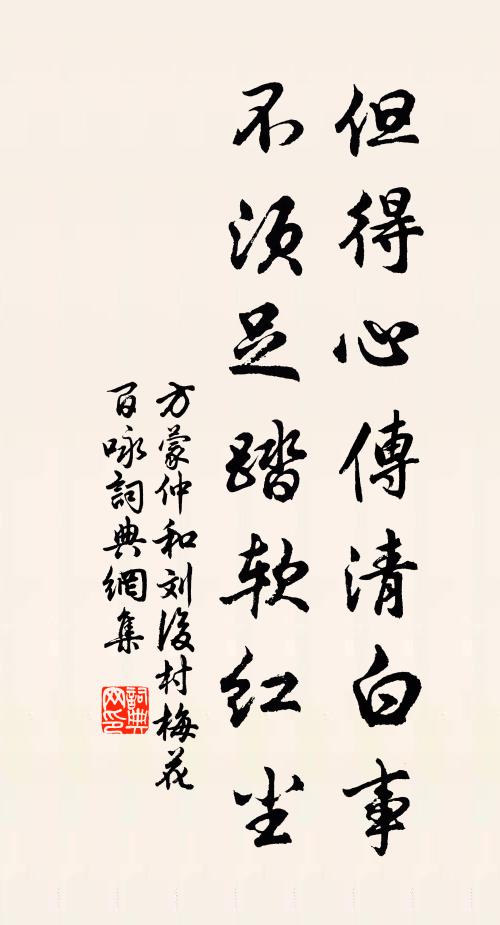 但得心傳清白事
不须足踏软红尘
方蒙仲和刘後村梅花
百咏詞典網集
詞典网印